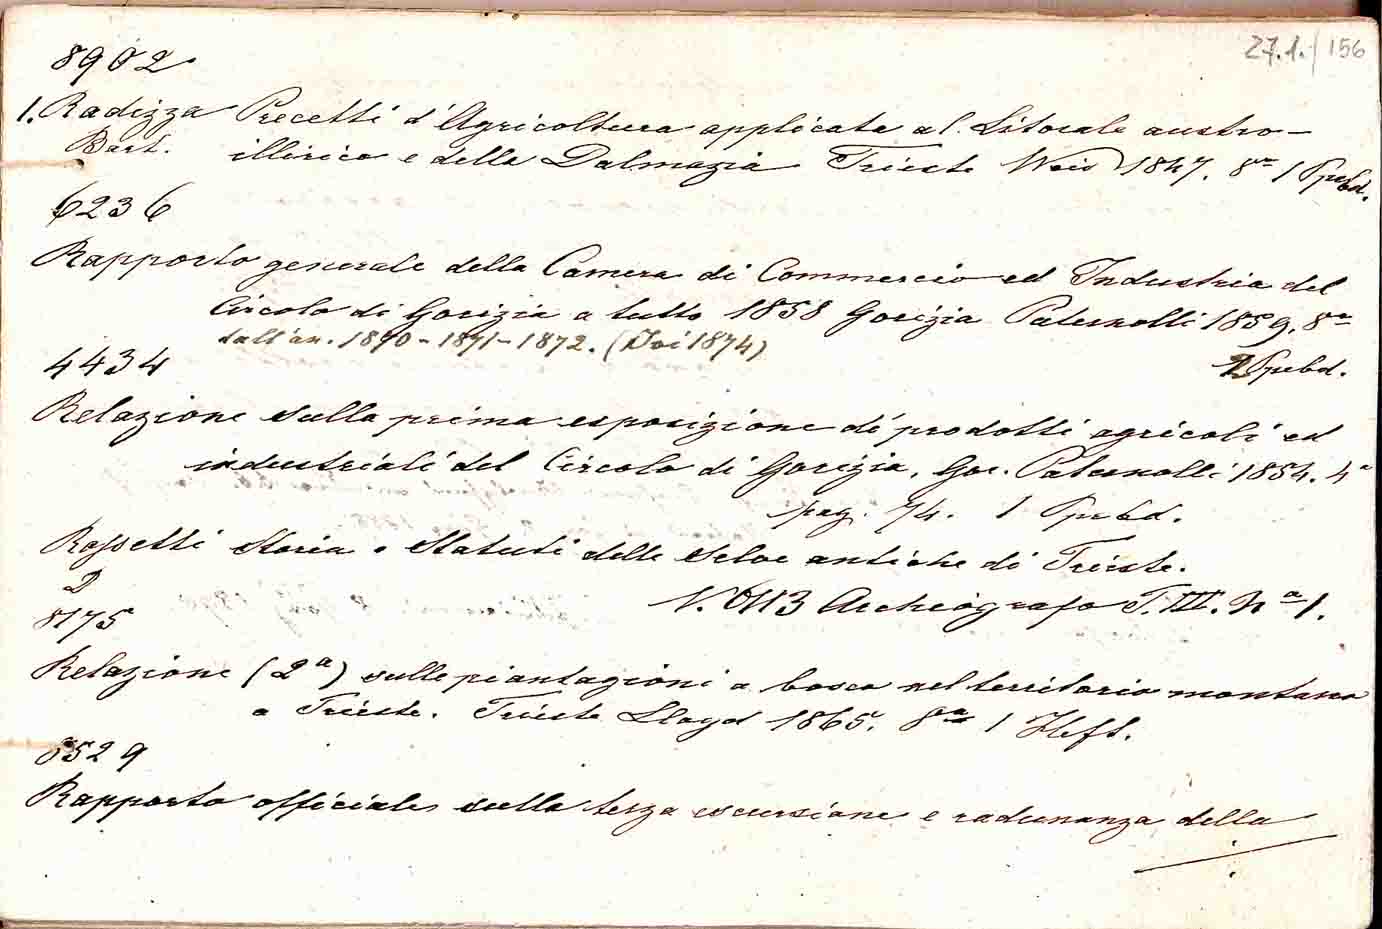 27.1./156
8902
1. Radizza Precetti d'Agricoltura applicata al Litorale austro-
Bart. illirico e della Dalmazia Trieste Weis 1847. 8° 1 Ppebd.
6236
Rapporto generale della Camera di Commercio ed Industria del
Circolo di Gorizia a tutto 1858 Gorizia Paternolli 1859. 8°
dall'an. 1870-1871-1872. (Ivi 1874)
2 Ppebd.
4434
Relazione sulla prima esposizione di prodotti agricoli ed
industriali del Circolo di Gorizia, Gor. Paternolli 1854. 4°
pag. 74. 1 Ppebd.
Rossetti Storia e Statuti delle Selve antiche di Trieste.
2
V. 6113 Archeografo T. III. N° 1.
8175
Relazione (2ª) sulle piantagioni a bosco nel territorio montano
a Trieste. Trieste Lloyd 1865. 8° 1 Heft.
8529
Rapporto officiale sulla terza escursione e radunanza della